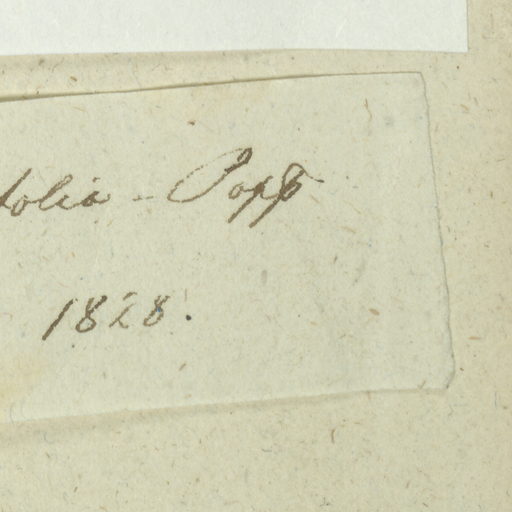 folia - Popp
1828.